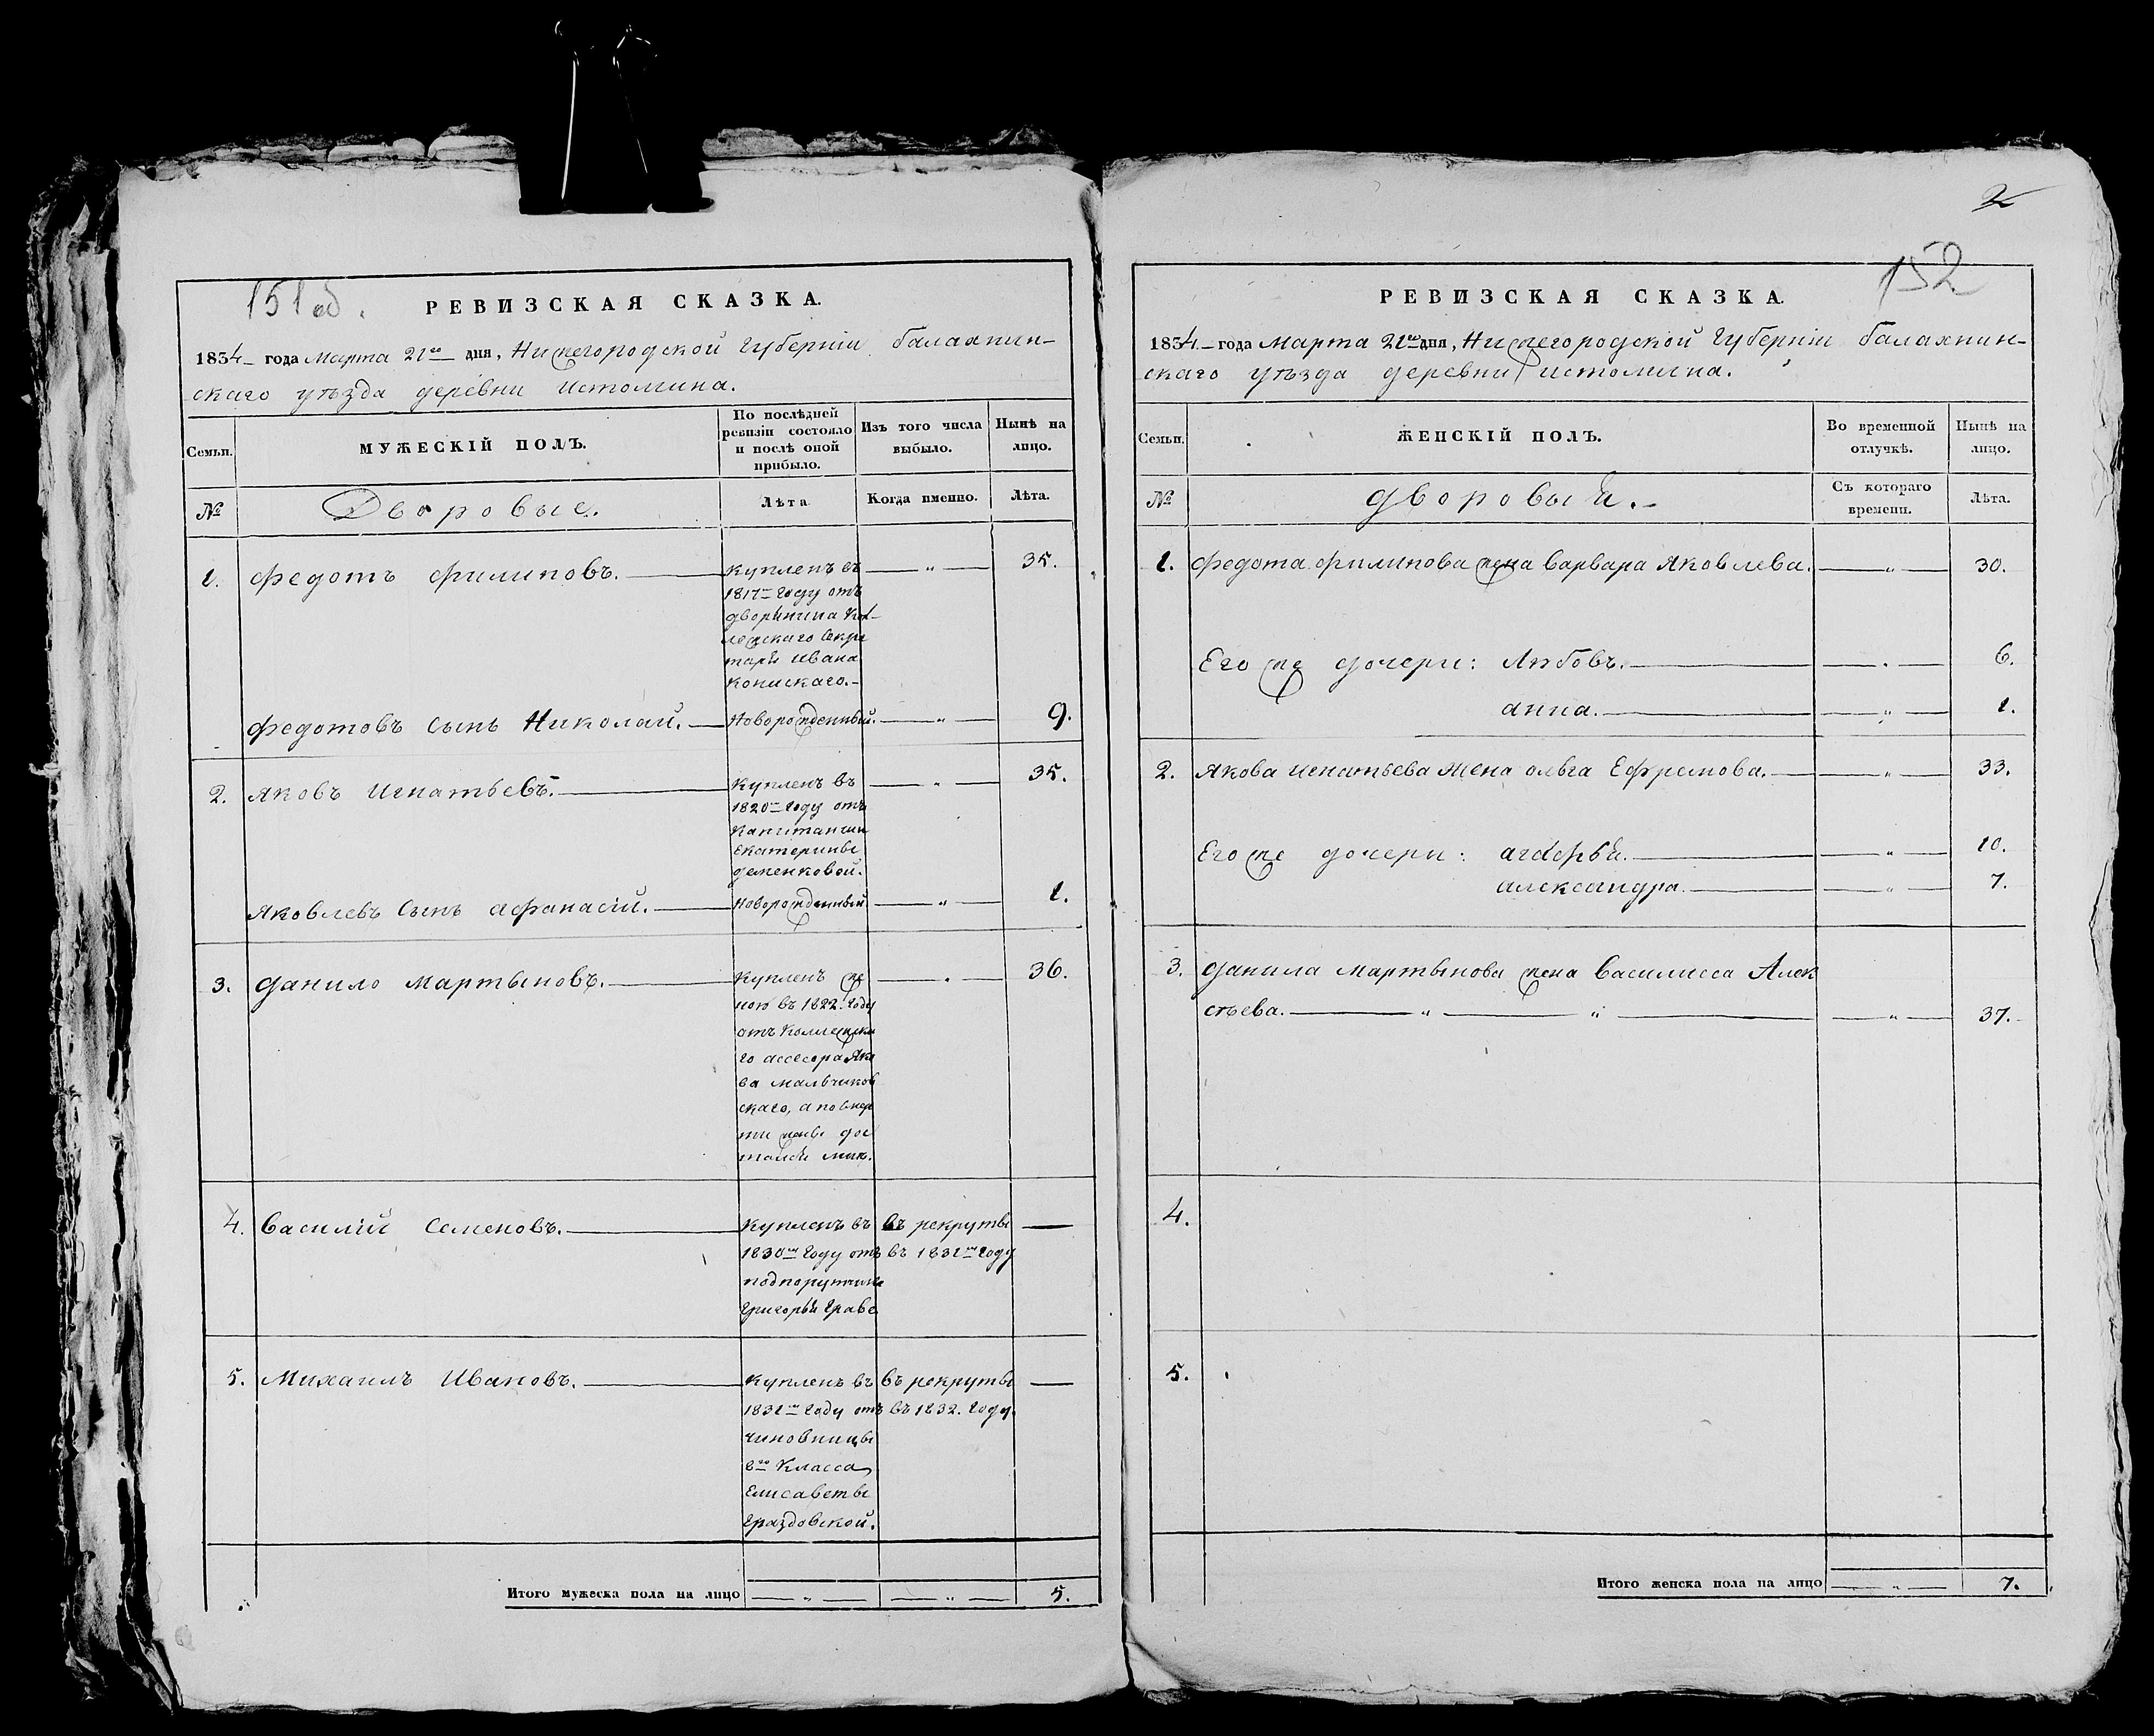 151 об.
РЕВИЗСКАЯ СКАЗКА.
1834 года Марта 21го дня, Нижегородской Губерніи балахнин-
скаго уѣзда деревни истомина.
Семьи.
МУЖЕСКІЙ ПОЛЪ.
По послѣдней
ревизіи состояло
и послѣ оной
прибыло.
Изъ того числа
выбыло.
Нынѣ на
лицо.
№
Дворовые.
Лѣта
Когда именно.
Лѣта.
1. Федотъ филиповъ. Купленъ въ " 35.
1817м Году отъ
дворянина Кол-
лежскаго Секре
таря ивана
федотовъ сынъ Николай. Новорожденный. " 9.
2. яковъ игнатьевъ. Купленъ въ " 35.
1820м Году отъ
Капитанши
Екатерины
деменковой.
яковлевъ Сынъ афанасій. Новорожденный " 1.
3. данило мартыновъ. Купленъ съ же " 36.
ною въ 1822. Году
отъ Коллежска
го ассесора Яко
ва мальчиков
скаго, а по смер
ти
4. Василій Семеновъ. Купленъ въ въ рекруты
1830м Году отъ въ 1831м Году
подпорутчика
Григорья Граве
5. Михаилъ Ивановъ. Купленъ въ въ рекруты
1831м Году отъ въ 1832. Году.
чиновницы
8го Класса
Елисаветы
Граздовской.
Итого мужеска пола на лицо " " 5.
2
152
РЕВИЗСКАЯ СКАЗКА.
1834 года Марта 21го дня, Нижегородской Губерніи балахнин-
скаго уѣзда деревни истомина.
Семьи.
ЖЕНСКІЙ ПОЛЪ.
Во временной
отлучкѣ.
Нынѣ на
лицо.
№
дворовыя.
Съ котораго
времени.
Лѣта.
1. федота филипова жена варвара яковлева. " 30.
Его же дочери: любовь. " 6.
анна. " 1.
2. якова игнатьева жена ольга Ефремова. " 33.
Его же дочери: агафья. " 10.
александра. " 7.
3. данила мартынова жена Василисса Алек
сѣева. " " " 37.
4.
5.
Итого женска пола на лицо " 7.